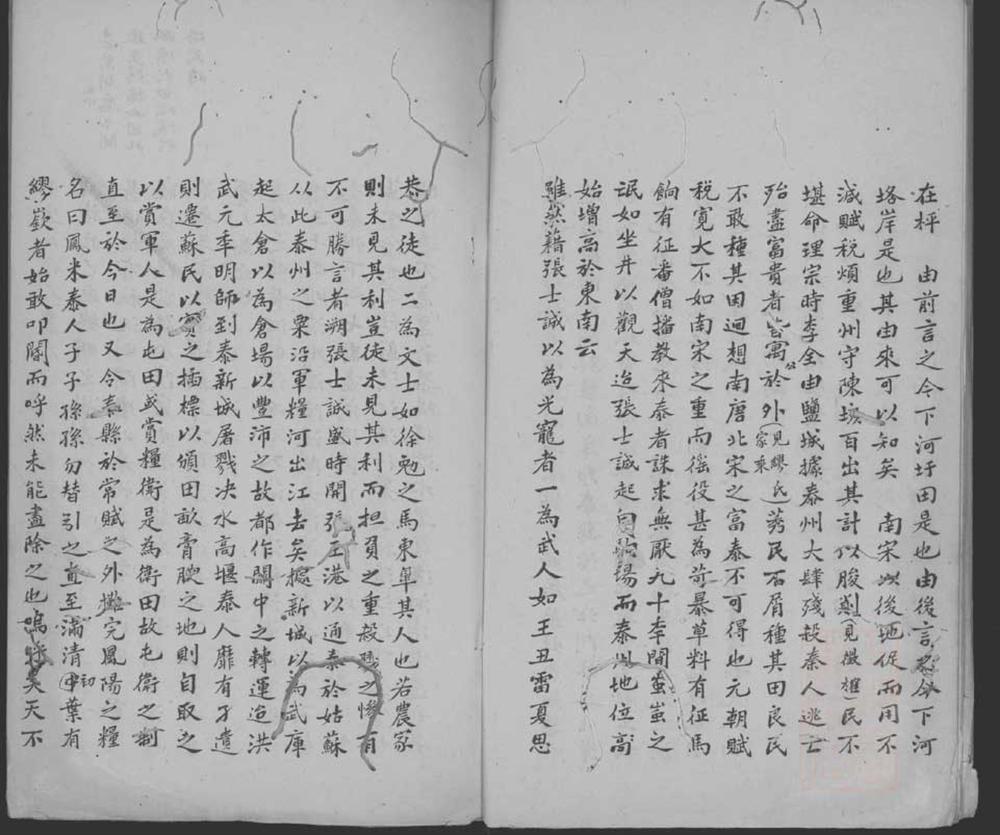 在枰　由前言之今下河圩田是也由後言之今下河
垎岸是也其由來可以知矣　南宋以後地促而用不
減賦稅煩重州守陳垓百出其計以朘剝（見檄樵）民不
堪命理宗時李全由鹽城據泰州大肆殘殺泰人逃亡
殆盡富貴者皆寓於外（見繆氏宗乘）莠民不屑種其田良民
不敢種其田迴想南唐北宋之富泰不可得也元朝賦
稅寬大不如南宋之重而徭役甚為苛暴草料有征馬
餉有征番僧播教來泰者誅求無厭九十年間蚩蚩之
氓如坐井以觀天迨張士誠起白駒場而泰州地位高
始增高於東南云
雖然藉張士誠以為光寵者一為武人如王丑雷夏思
恭之徒也二為文士如徐勉之馬東皐其人也若農家
則未見其利豈徒未見其利而担負之重殺戮之慘有
不可勝言者溯張士誠盛時開張王港以通泰於姑蘇
從此泰州之粟沿軍糧河出江去矣據新城以為武庫
起太倉以為倉場以豐沛之故都作關中之轉運迨洪
武元年明師到泰新城屠戮決水高堰泰人靡有孑遺
則遷蘇民以實之插標以頒田畝膏腴之地則自取之
以賞軍人是為屯田或賞糧衛是為衛田故屯衛之制
直至於今日也又令泰縣於常賦之外攤完鳳陽之糧
名曰鳳米泰人子子孫孫勿替引之直至滿清初葉有
繆嶔者始敢叩閽而呼然未能盡除之也嗚呼昊天不